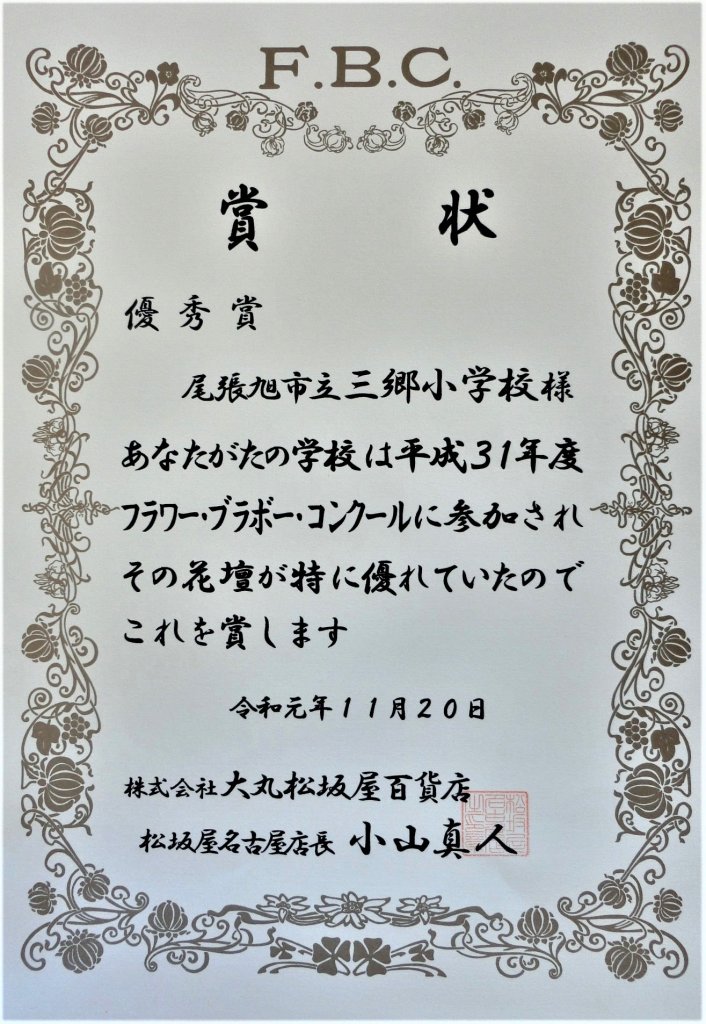 F.B.C.
賞 状
優秀賞
尾張旭市立三郷小学校様
あなたがたの学校は平成31年度
フラワー・ブラボー・コンクールに参加され
その花壇が特に優れていたので
これを賞します
令和元年11月20日
株式会社大丸松坂屋百貨店
松坂屋名古屋店長 小山真人